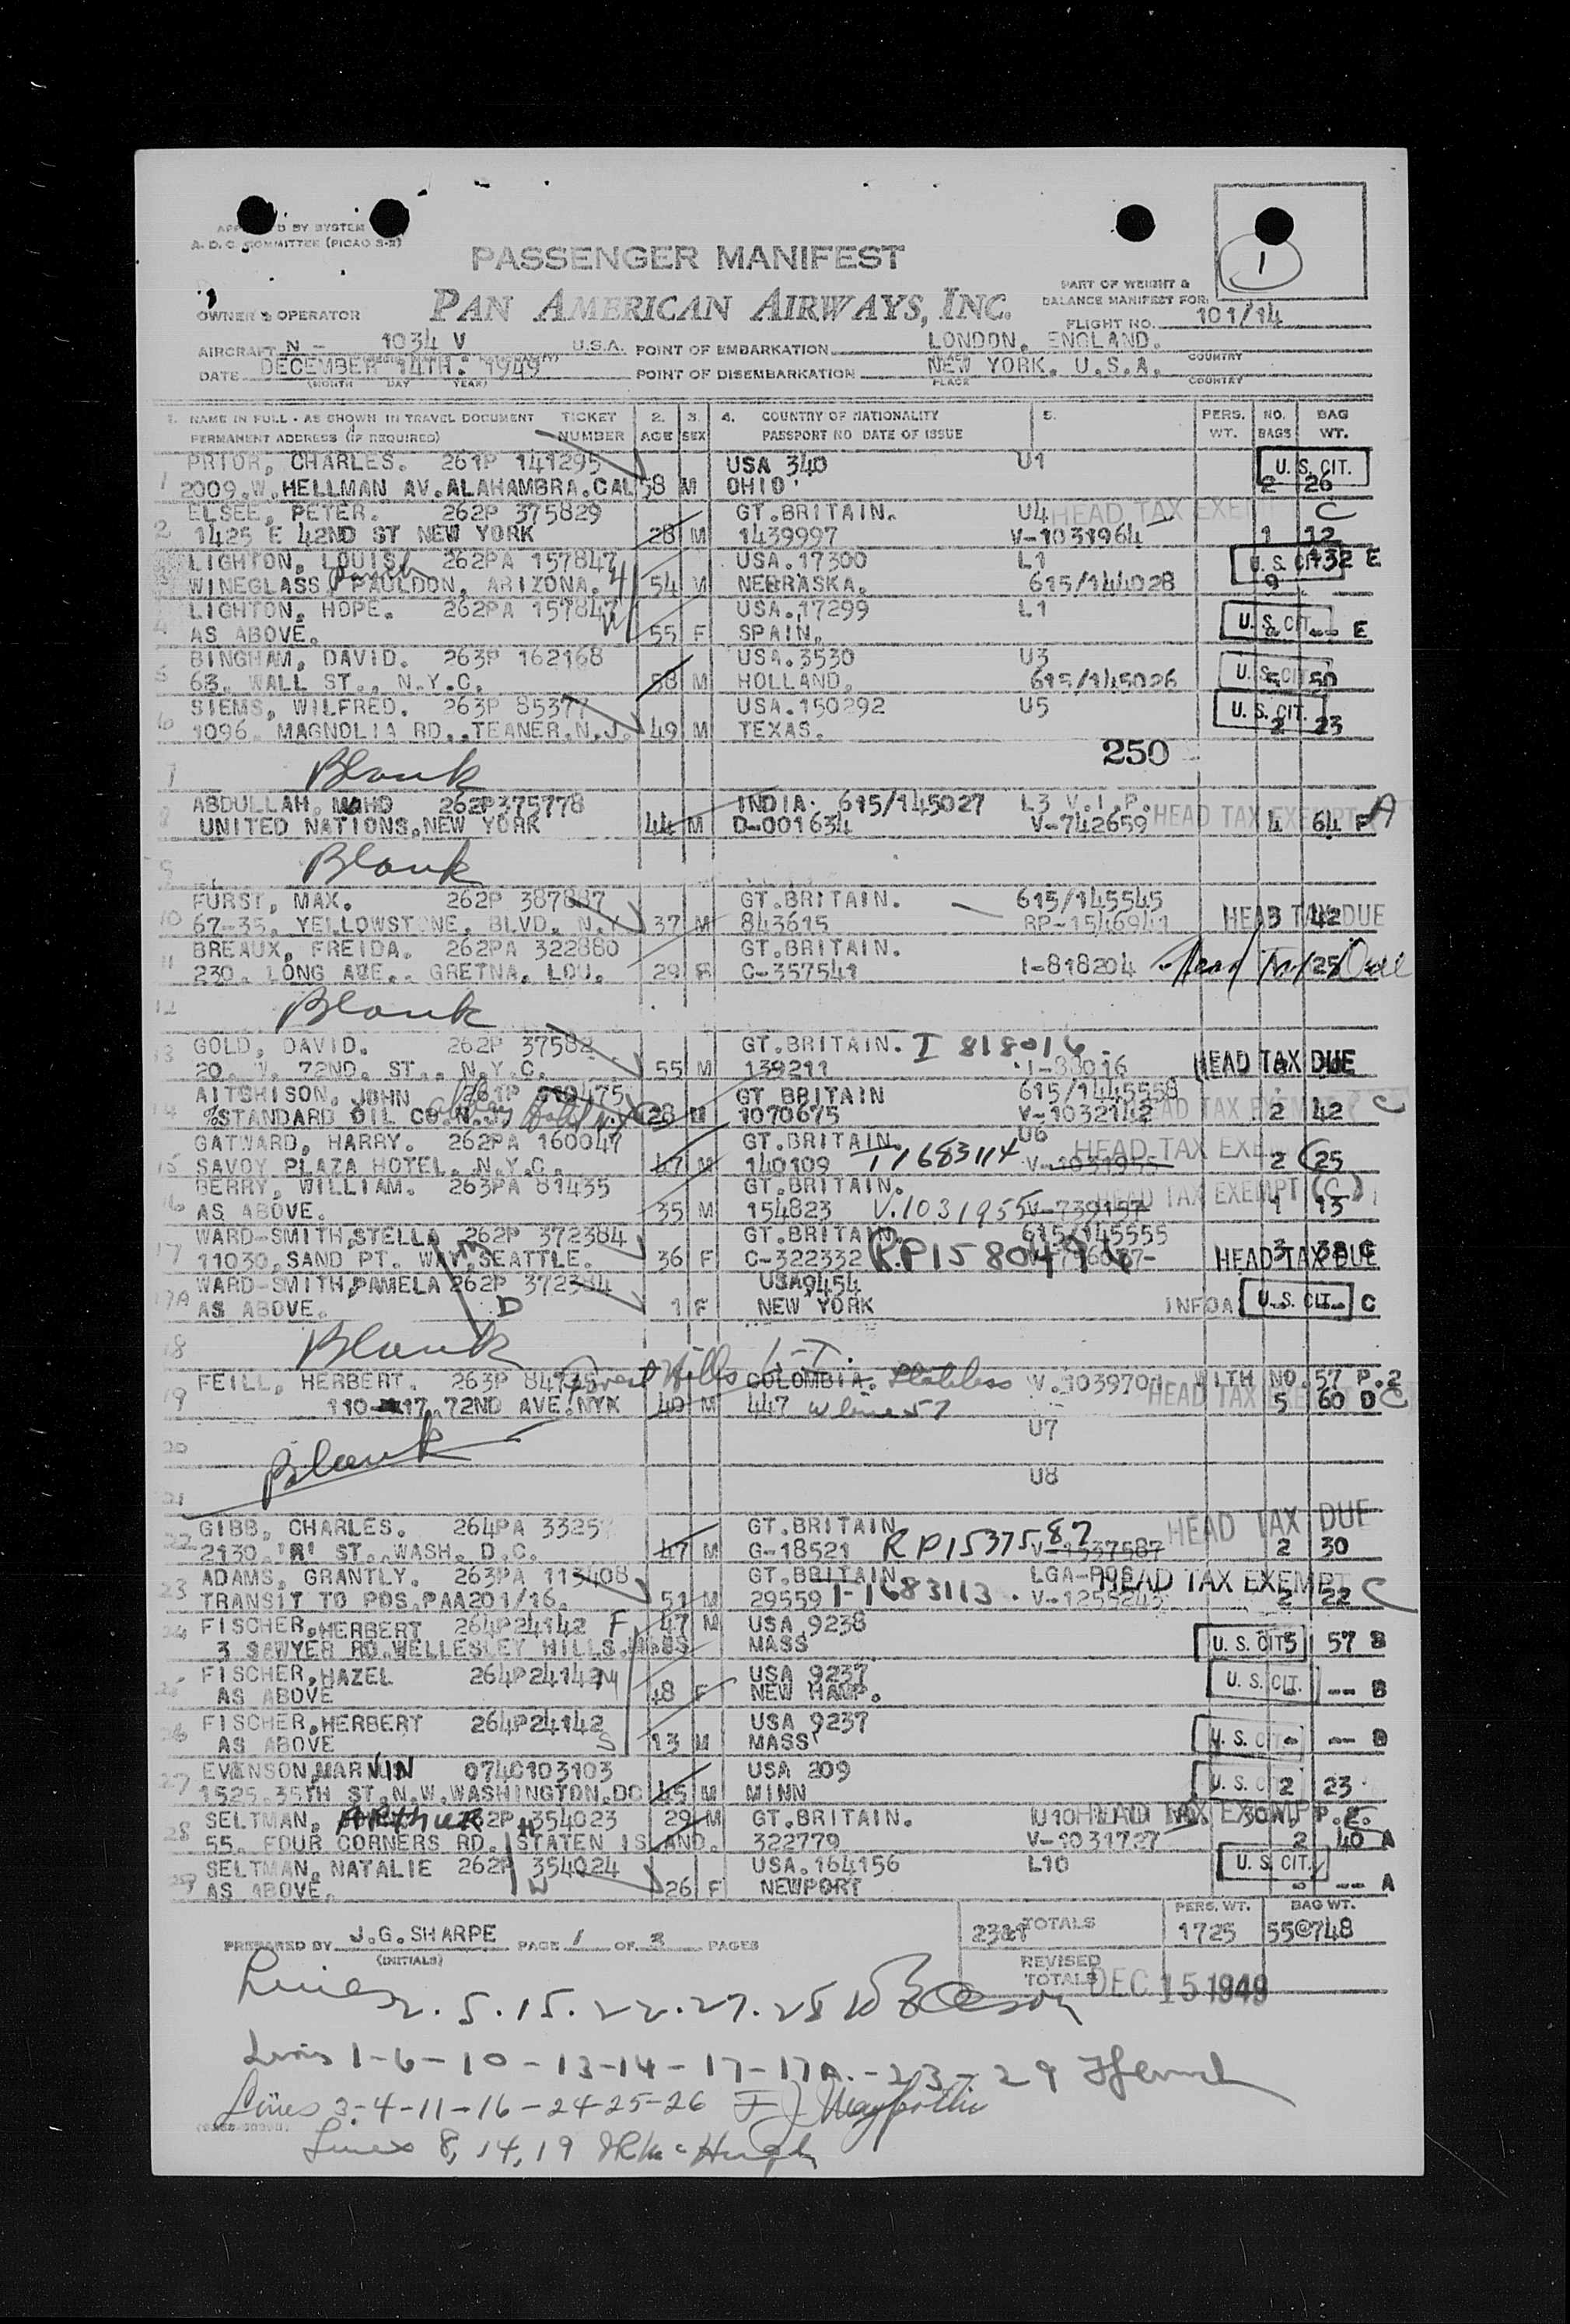 1
D BY SYSTEM
A. D. C. COMMITTEE (PICAO S-2)
PASSENGER MANIFEST
PART OF WEIGHT &
BALANCE MANIFEST FOR:
OWNER & OPERATOR PAN AMERICAN AIRWAYS, INC.
FLIGHT NO. 101/14
AIRCRAFT N - 1034 V U.S.A. POINT OF EMBARKATION LONDON, ENGLAND.
COUNTRY
DATE DECEMBER 14TH. 1949 POINT OF DISEMBARKATION NEW YORK. U.S.A.
(MONTH DAY YEAR) PLACE COUNTRY
1. NAME IN FULL - AS SHOWN IN TRAVEL DOCUMENT TICKET 2. 3. 4. COUNTRY OF NATIONALITY 5. PERS. NO. BAG
PERMANENT ADDRESS (IF REQUIRED) NUMBER AGE SEX PASSPORT NO DATE OF ISSUE WT. BAGS WT.
PRIOR, CHARLES. 261P 141295 USA 340 U1 U. S. CIT.
1 2009.W.HELLMAN AV.ALAHAMBRA.CAL 58 M OHIO. 2 26
ELSEE, PETER. 262P 375829 GT.BRITAIN. U4 HEAD TAX EXEMPT C
2 1425 E 42ND ST NEW YORK 28 M 1439997 V-1031964 1 12
LIGHTON, LOUIS 262PA 157847 USA.17300 L1 U. S. CIT. 132 E
WINEGLASS PAULDON, ARIZONA. H 54 M NEBRASKA. 615/144028 9
LIGHTON, HOPE. 262PA 157847 USA.17299 L1 U. S. CIT.
4 AS ABOVE. W 55 F SPAIN. -- E
BINGHAM, DAVID. 263P 162168 USA.3530 U3 U. S. CIT.
5 63. WALL ST., N.Y.C. 58 M HOLLAND. 615/145026 5 50
SIEMS, WILFRED. 263P 85377 USA.150292 U5 U. S. CIT.
6 1096. MAGNOLIA RD..TEANER.N.J. 49 M TEXAS. 2 23
250
7 Blank
ABDULLAH, MAHD 262P375778 INDIA. 615/145027 L3 V.I.P. HEAD TAX EXEMPT A
8 UNITED NATIONS,NEW YORK 44 M D-001634 V-742659 4 64 F
9 Blank
FURST, MAX. 262P 387887 GT.BRITAIN. 615/145545
10 67-35. YELLOWSTONE. BLVD. N.Y 37 M 843615 RP-1546941 HEAD TAX DUE 3 42
BREAUX, FREIDA. 262PA 322880 GT.BRITAIN.
11 230. LONG AVE.. GRETNA. LOU. 29 F C-357541 I-818204 Head Tax Due 25
12 Blank
13 GOLD, DAVID. 262P 37582 GT.BRITAIN. I 818016.
20. W. 72ND. ST.. N.Y.C. 55 M 139211 HEAD TAX DUE
AITCHISON, JOHN GT BRITAIN 615/1445558
14 %STANDARD OIL CO.N.J. 28 M 1070675 V-1032142 HEAD TAX EXEMPT 2 42 C
GATWARD, HARRY. 262PA 160047 GT.BRITAIN. U6 HEAD TAX EXE
15 SAVOY PLAZA HOTEL. N.Y.C. 47 M 140109 I1683114 V-1031955 2 C 25
BERRY, WILLIAM. 263PA 81435 GT.BRITAIN. HEAD TAX EXEMPT (C)
16 AS ABOVE. 35 M 154823 V.1031955 V-739157 1 13
WARD-SMITH,STELLA 262P 372384 GT.BRITAIN. 615/145555
17 11030.SAND PT. WAY.SEATTLE. M 36 F C-322332 RP1580494 HEAD TAX DUE 3 38 C
WARD-SMITH,PAMELA 262P 372384 USA9454
17A AS ABOVE. D 1 F NEW YORK U. S. CIT. C
18 Blank
FEILL, HERBERT. 263P Forest Hills L-I. COLOMBIA. Stateless V.1039701 WITH NO.57 P.2
19 110 17.72ND AVE.NYK 40 M 447 w line 57 HEAD TAX EXEMPT 5 60 D C
U7
20 Blank
U8
21
GIBB, CHARLES. 264PA 3325 GT.BRITAIN HEAD TAX DUE
22 2130.'R' ST..WASH. D.C. 47 M G-18521 RP1537587 V-1537587 2 30
ADAMS, GRANTLY. 263PA 113408 GT.BRITAIN LGA-POS HEAD TAX EXEMPT
23 TRANSIT TO POS.PAA201/16. 51 M 29559 I-1683113. 2 22 C
24 FISCHER,HERBERT 264P24142 F 47 M USA 9238
3 SAWYER RD.WELLESLEY HILLS.MASS MASS U. S. CIT. 5 57 B
FISCHER,HAZEL 264P24142 M USA 9237 U. S. CIT.
AS ABOVE 48 F NEW HAMP. -- B
26 FISCHER,HERBERT 264P24142 USA 9237
AS ABOVE S 13 M MASS U. S. CIT. -- B
EVENSON,MARVIN 0740103103 USA 209
27 1525.35TH ST.N.W.WASHINGTON.DC 45 M MINN U. S. CIT. 2 23
SELTMAN, ARTHUR 262P 354023 29 M GT.BRITAIN. U10 HEAD TAX EXEMPT P.2.
28 55. FOUR CORNERS RD. H STATEN ISLAND. 322779 V-1031727 2 40 A
SELTMAN, NATALIE 262P 354024 USA.164156 L10 U. S. CIT.
29 AS ABOVE. W 26 F NEWPORT -- A
PERS. WT. BAG WT.
PREPARED BY J.G.SHARPE PAGE 1 OF 3 PAGES TOTALS 1725 55@748
(INITIALS) REVISED
TOTALS DEC 15 1949
Lines 2. 5. 15. 22. 27. 28
Lines 1-6-10-13-14-17-17A.-23-29
Lines 3-4-11-16-24-25-26
Lines 8, 14, 19